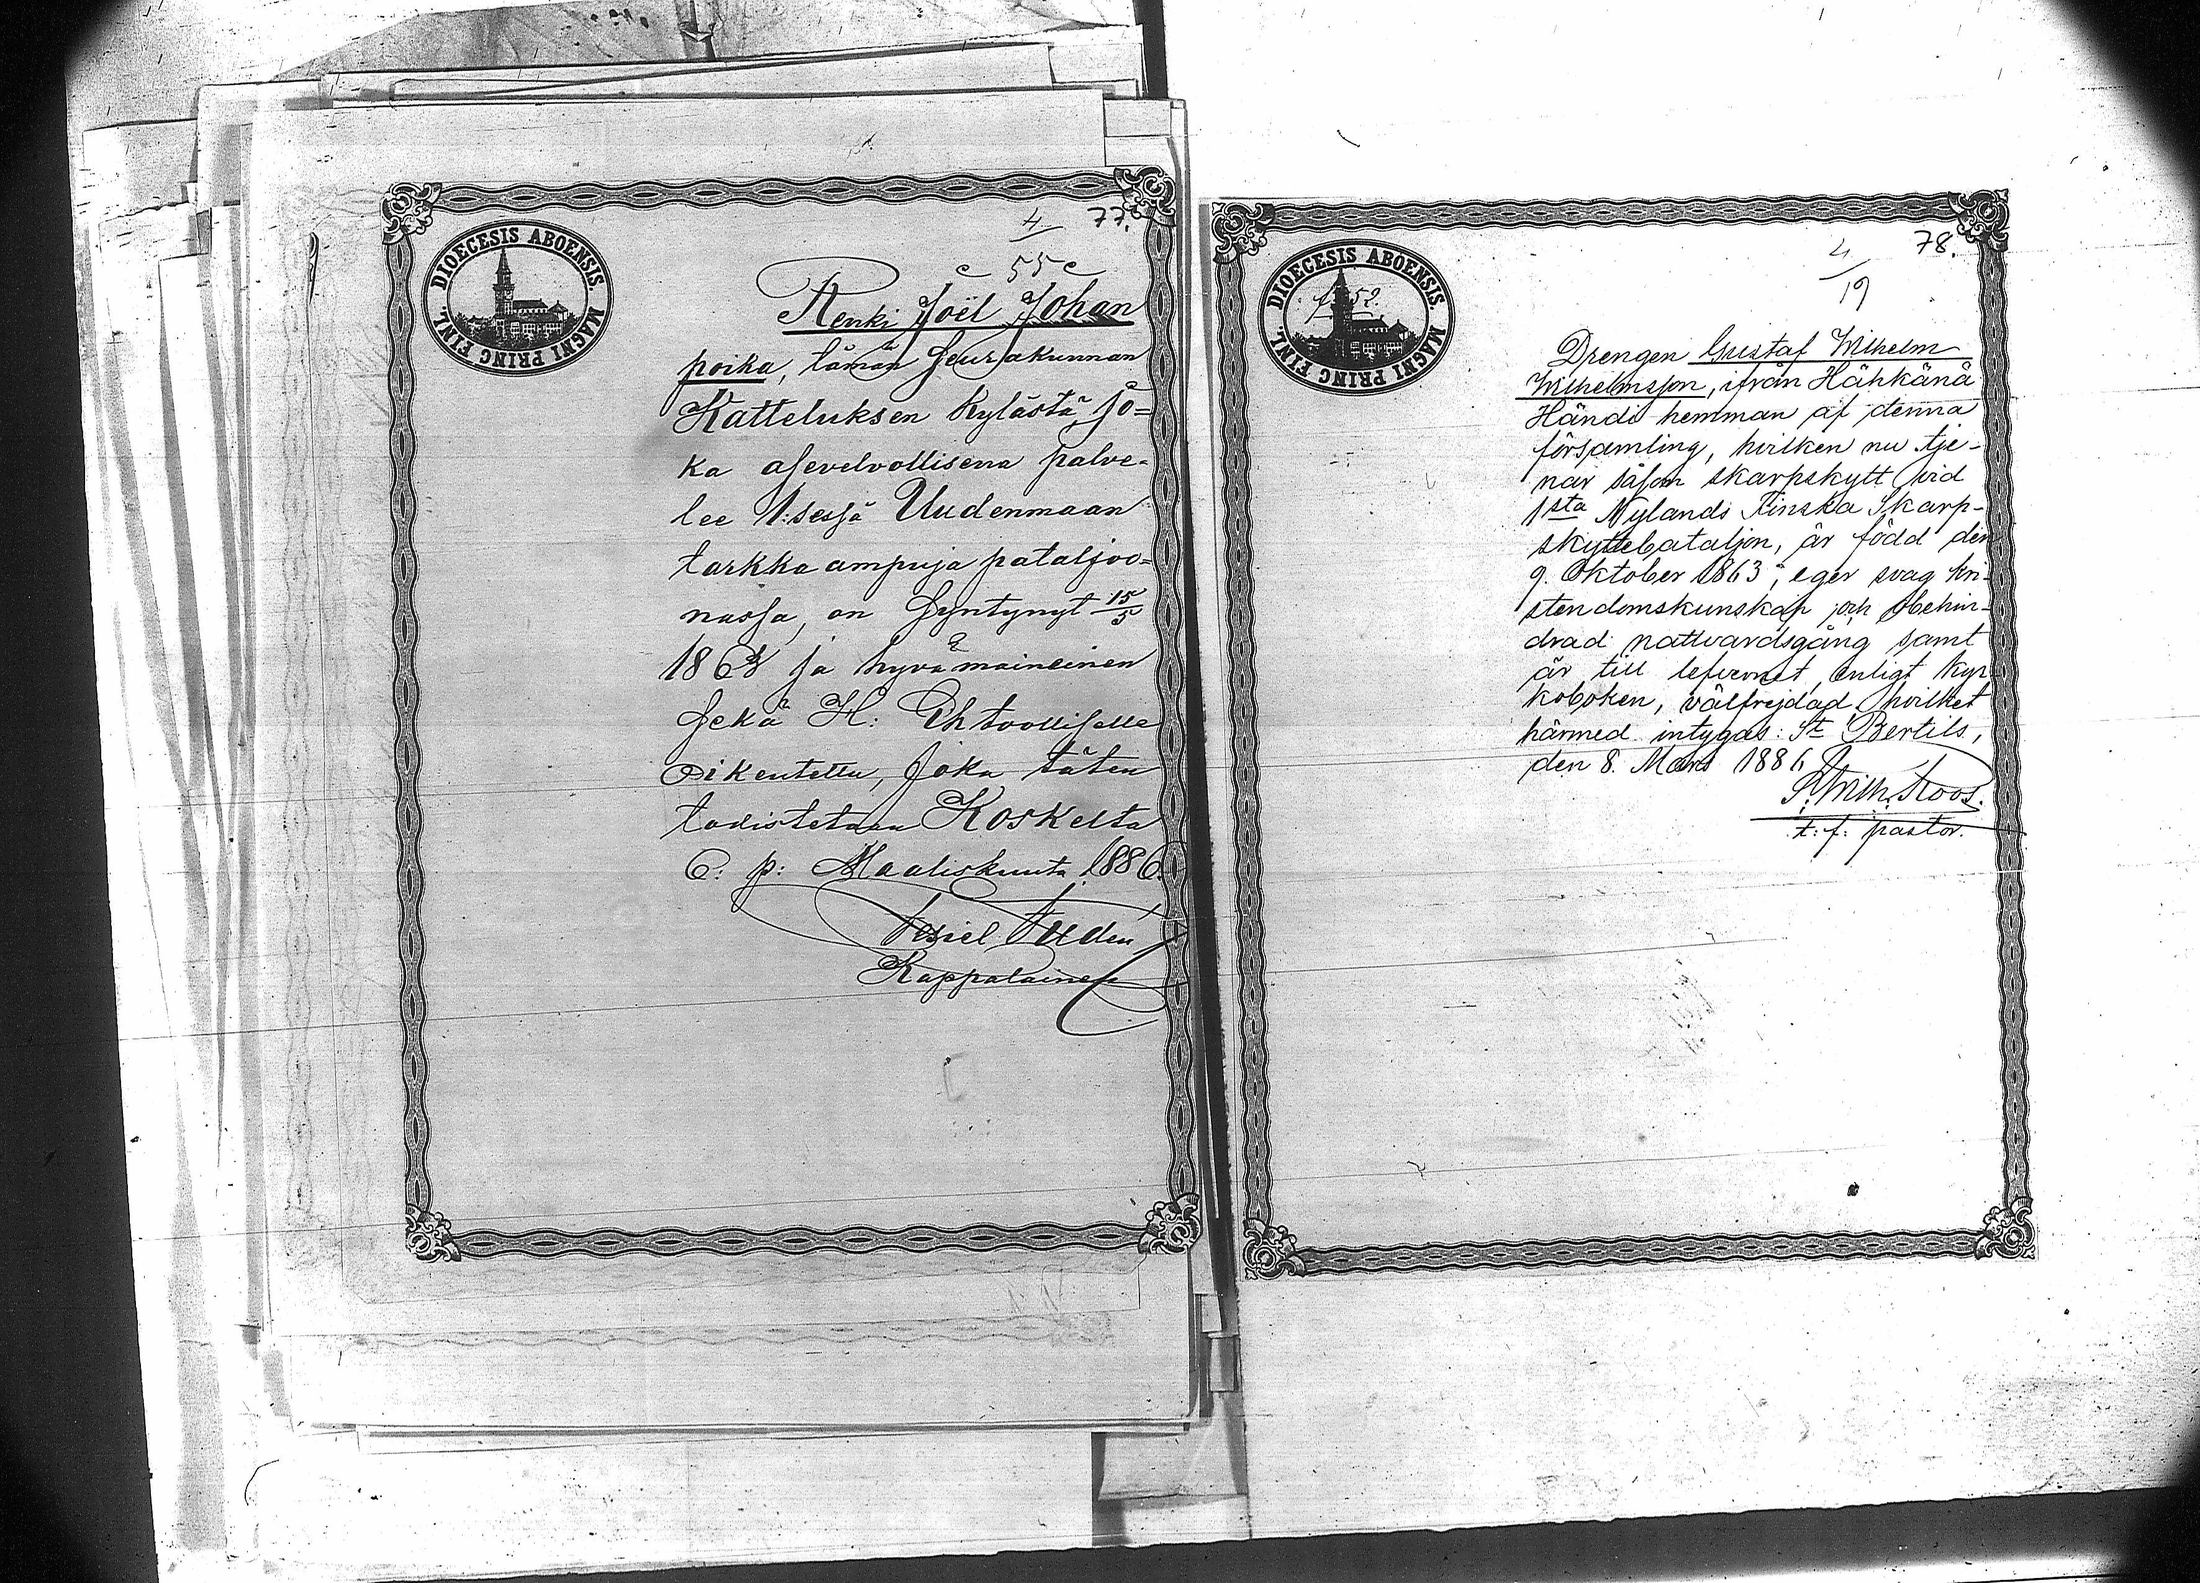 DIOECESIS ABOENSIS. MAGNI PRINC FINL.
4
77.
55
Renki Joël Johan
poika, tämän Seurakunnan
Katteluksen kylästä, jo=
ka asevelvollisena palve=
lee 1:sessä Uudenmaan
tarkka ampuja pataljoo=
nassa, on syntynyt 15/5
1863 ja hyvämaineinen
sekä H: Ehtoolliselle
oikeutettu, joka täten
todistetaan Koskelta
6: p: Maaliskuuta 1886.
Kappalainen
DIOECESIS ABOENSIS. MAGNI PRINC FINL.
78.
4
19
Drengen Gustaf Wilhelm
Wilhelmsson, ifrån Hähkänä
Händi hemman af denna
församling, hvilken nu tje-
nar såsom skarpskytt vid
1sta Nylands Finska Skarp-
skyttebataljon, är född den
9. Oktober 1863; eger svag kri-
stendomskunskap och obehin-
drad nattvardsgång samt
är till lefvernet, enligt kyr-
koboken, välfrejdad, hvilket
härmed intygas: St Bertils,
den 8. Mars 1886
Wilh. Roos.
t: f: pastor.